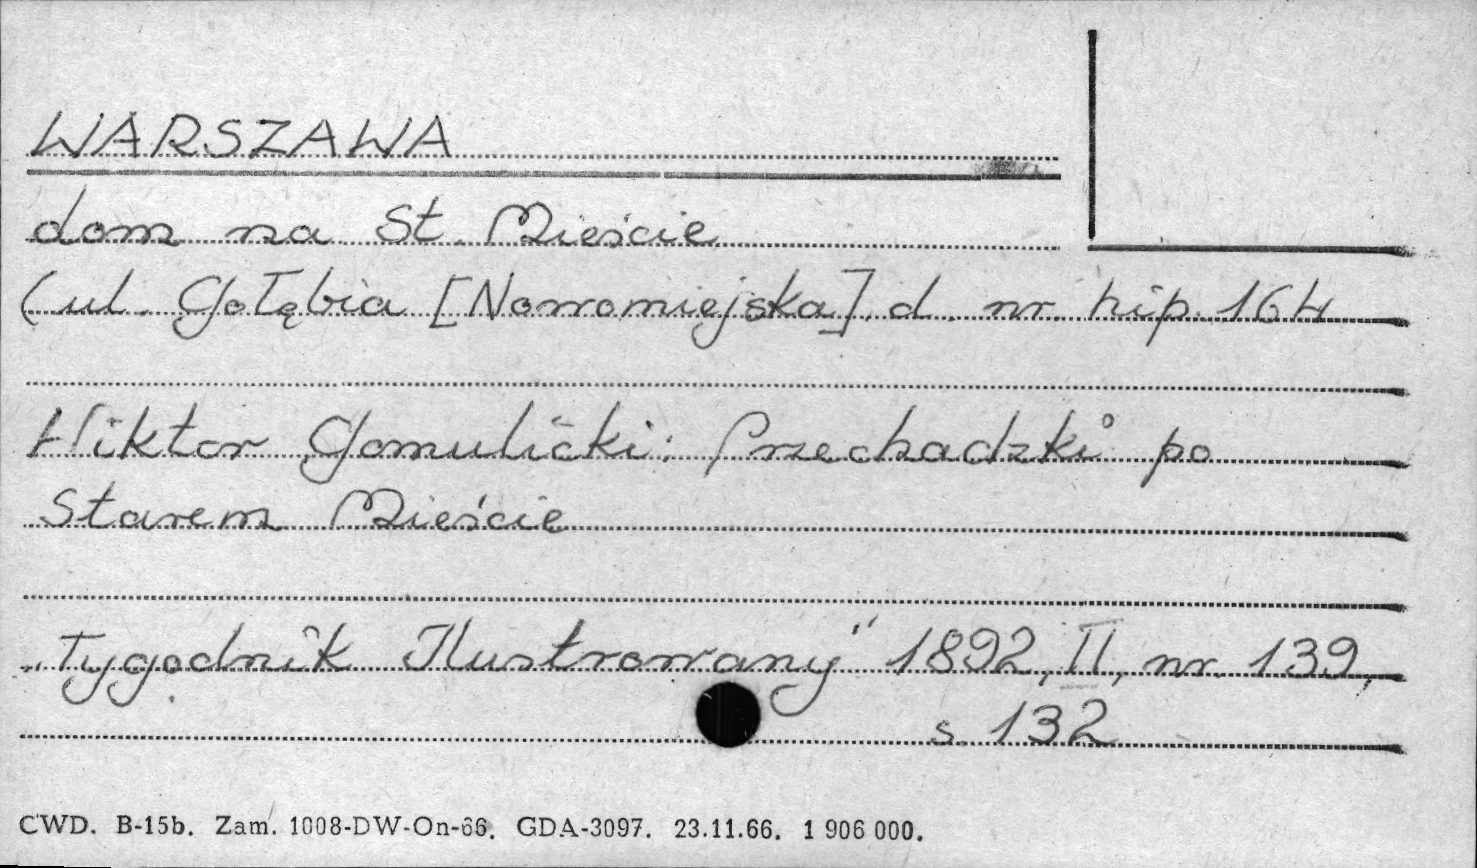 WARSZAWA
dom na St. Mieście
(ul. Gołębia [Nowomiejska] d. nr. hip. 164
Wiktor Gomulicki: Przechadzki po
Starem Mieście
„Tygodnik Ilustrowany" 1892, II, nr. 139,
s. 132
CWD. B-15b. Zam. 1008-DW-On-66. GDA-3097. 23.11.66. 1 906 000.